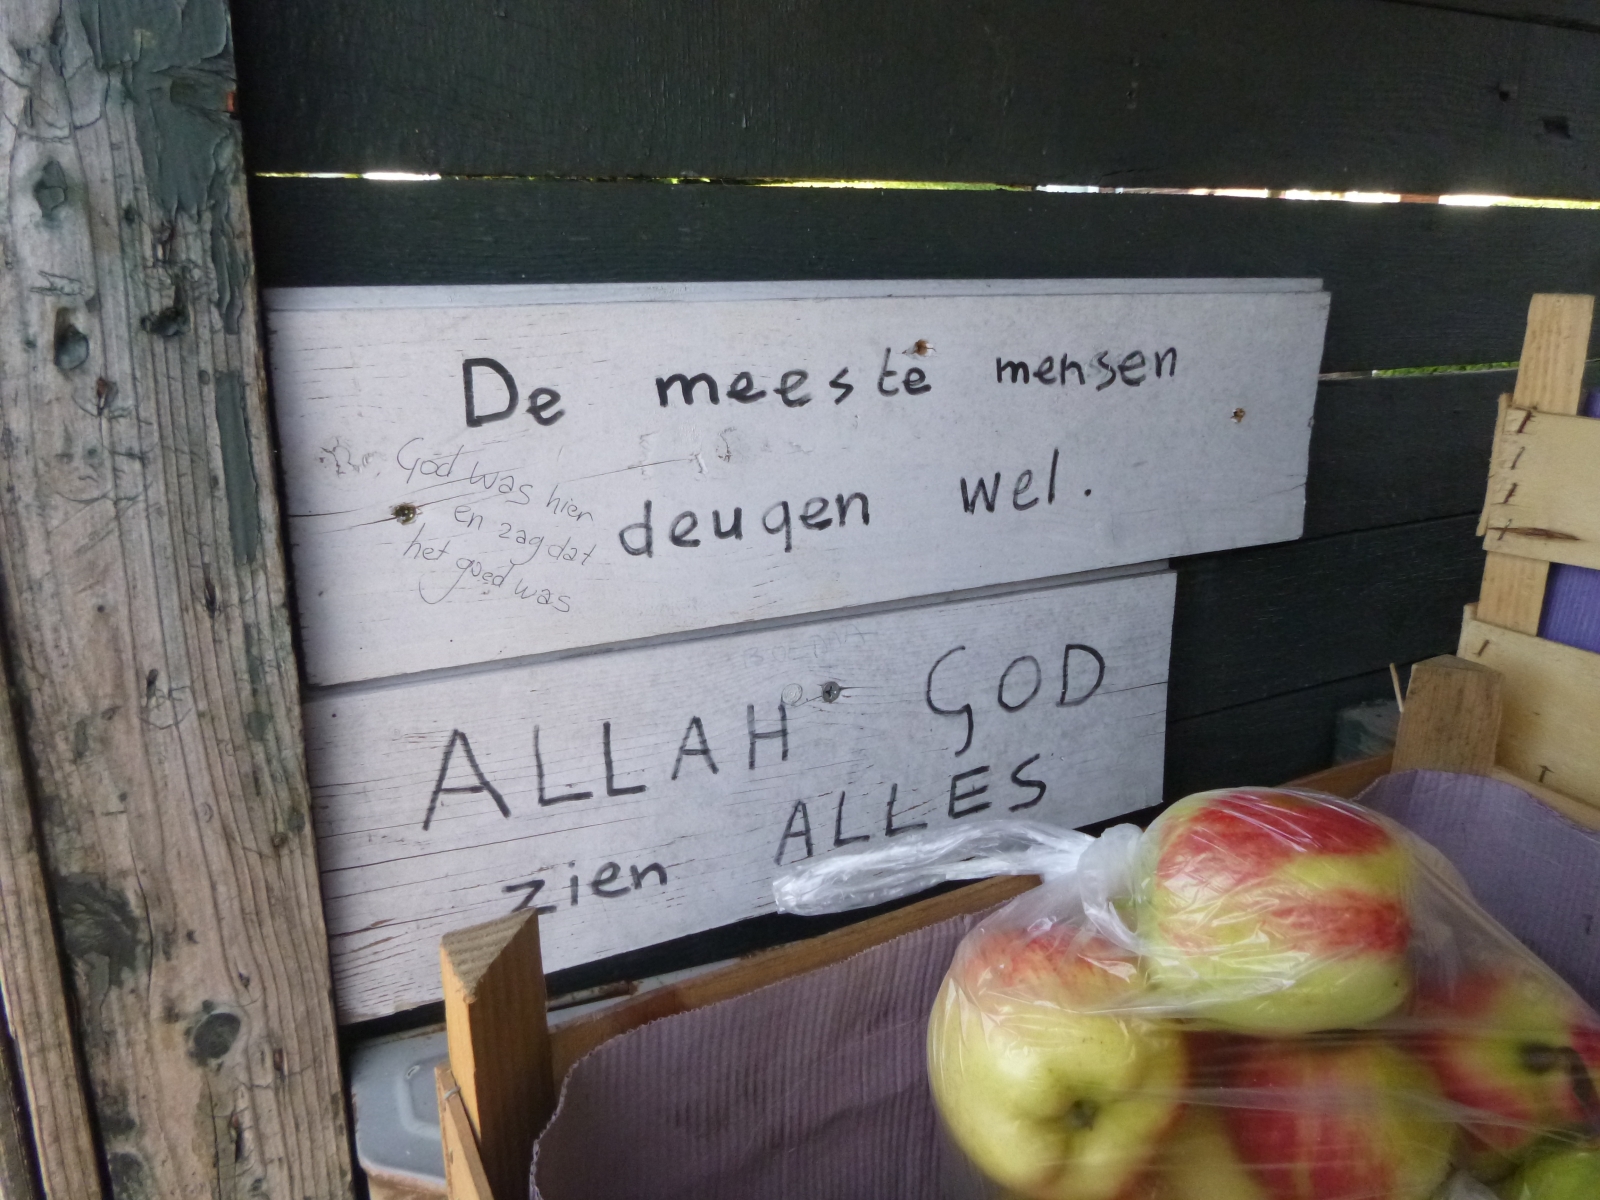 De meeste mensen
deugen wel.
God was hier
en zag dat
het goed was
ALLAH GOD
zien ALLES